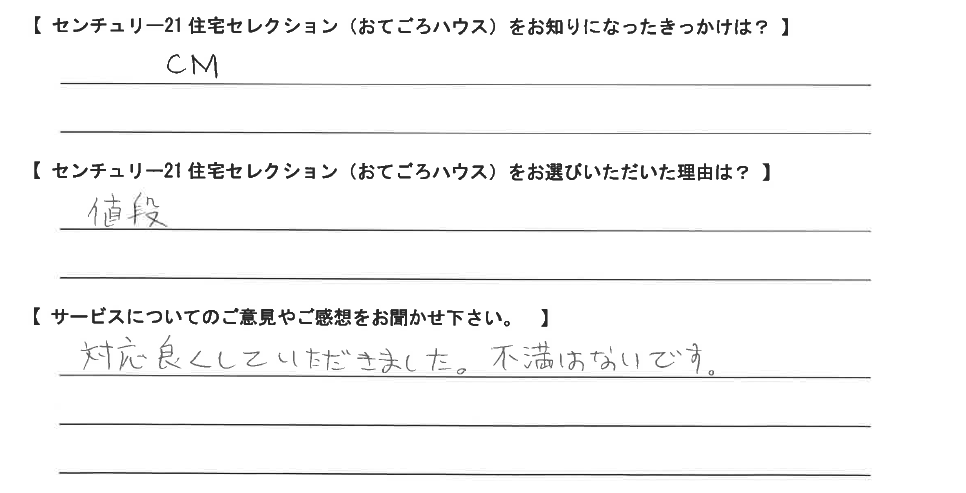 【 センチュリー21 住宅セレクション（おてごろハウス）をお知りになったきっかけは？ 】
CM
【 センチュリー21 住宅セレクション（おてごろハウス）をお選びいただいた理由は？ 】
値段
【 サービスについてのご意見やご感想をお聞かせ下さい。 】
対応良くしていただきました。不満はないです。